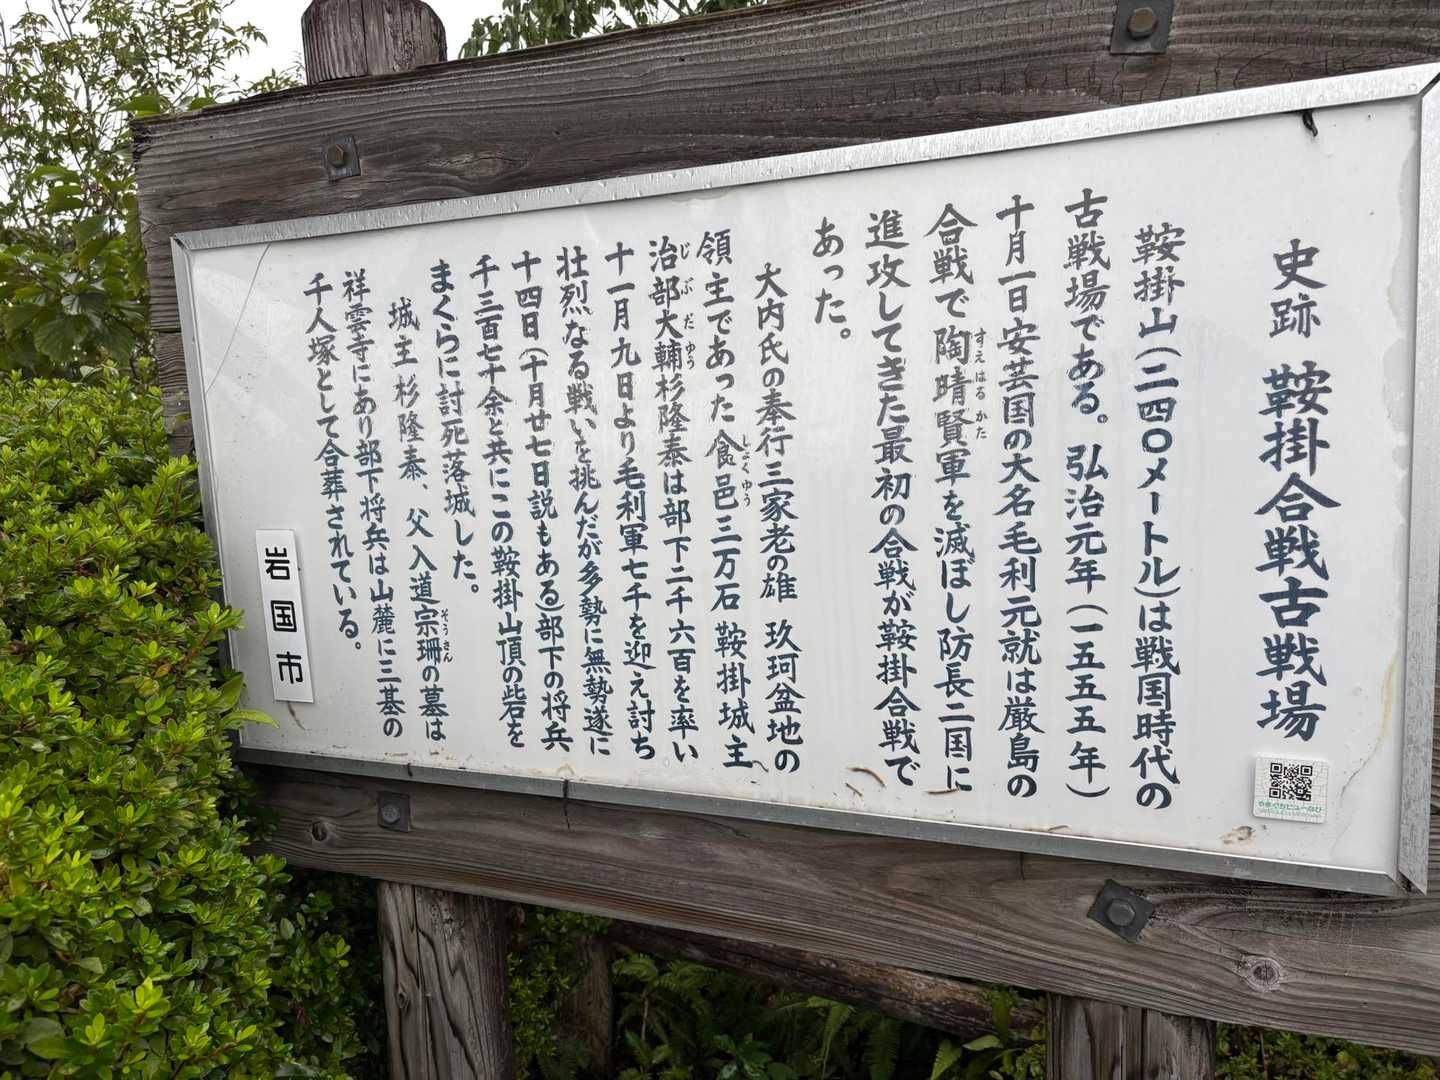 史跡 鞍掛合戦古戦場
鞍掛山(二四〇メートル)は戦国時代の
古戦場である。弘治元年(一五五五年)
十月一日安芸国の大名毛利元就は厳島の
合戦で陶晴賢軍を滅ぼし防長二国に
すえはるかた
進攻してきた最初の合戦が鞍掛合戦で
あった。
大内氏の奉行三家老の雄 玖珂盆地の
領主であった食邑三万石 鞍掛城主
しょくゆう
治部大輔杉隆泰は部下二千六百を率い
じぶだゆう
十一月九日より毛利軍七千を迎え討ち
壮烈なる戦いを挑んだが多勢に無勢遂に
十四日(十月廿七日説もある)部下の将兵
千三百七十余と共にこの鞍掛山頂の砦を
まくらに討死落城した。
城主杉隆泰、父入道宗珊の墓は
そうさん
祥雲寺にあり部下将兵は山麓に三基の
千人塚として合葬されている。
岩国市
やまぐちビューなび